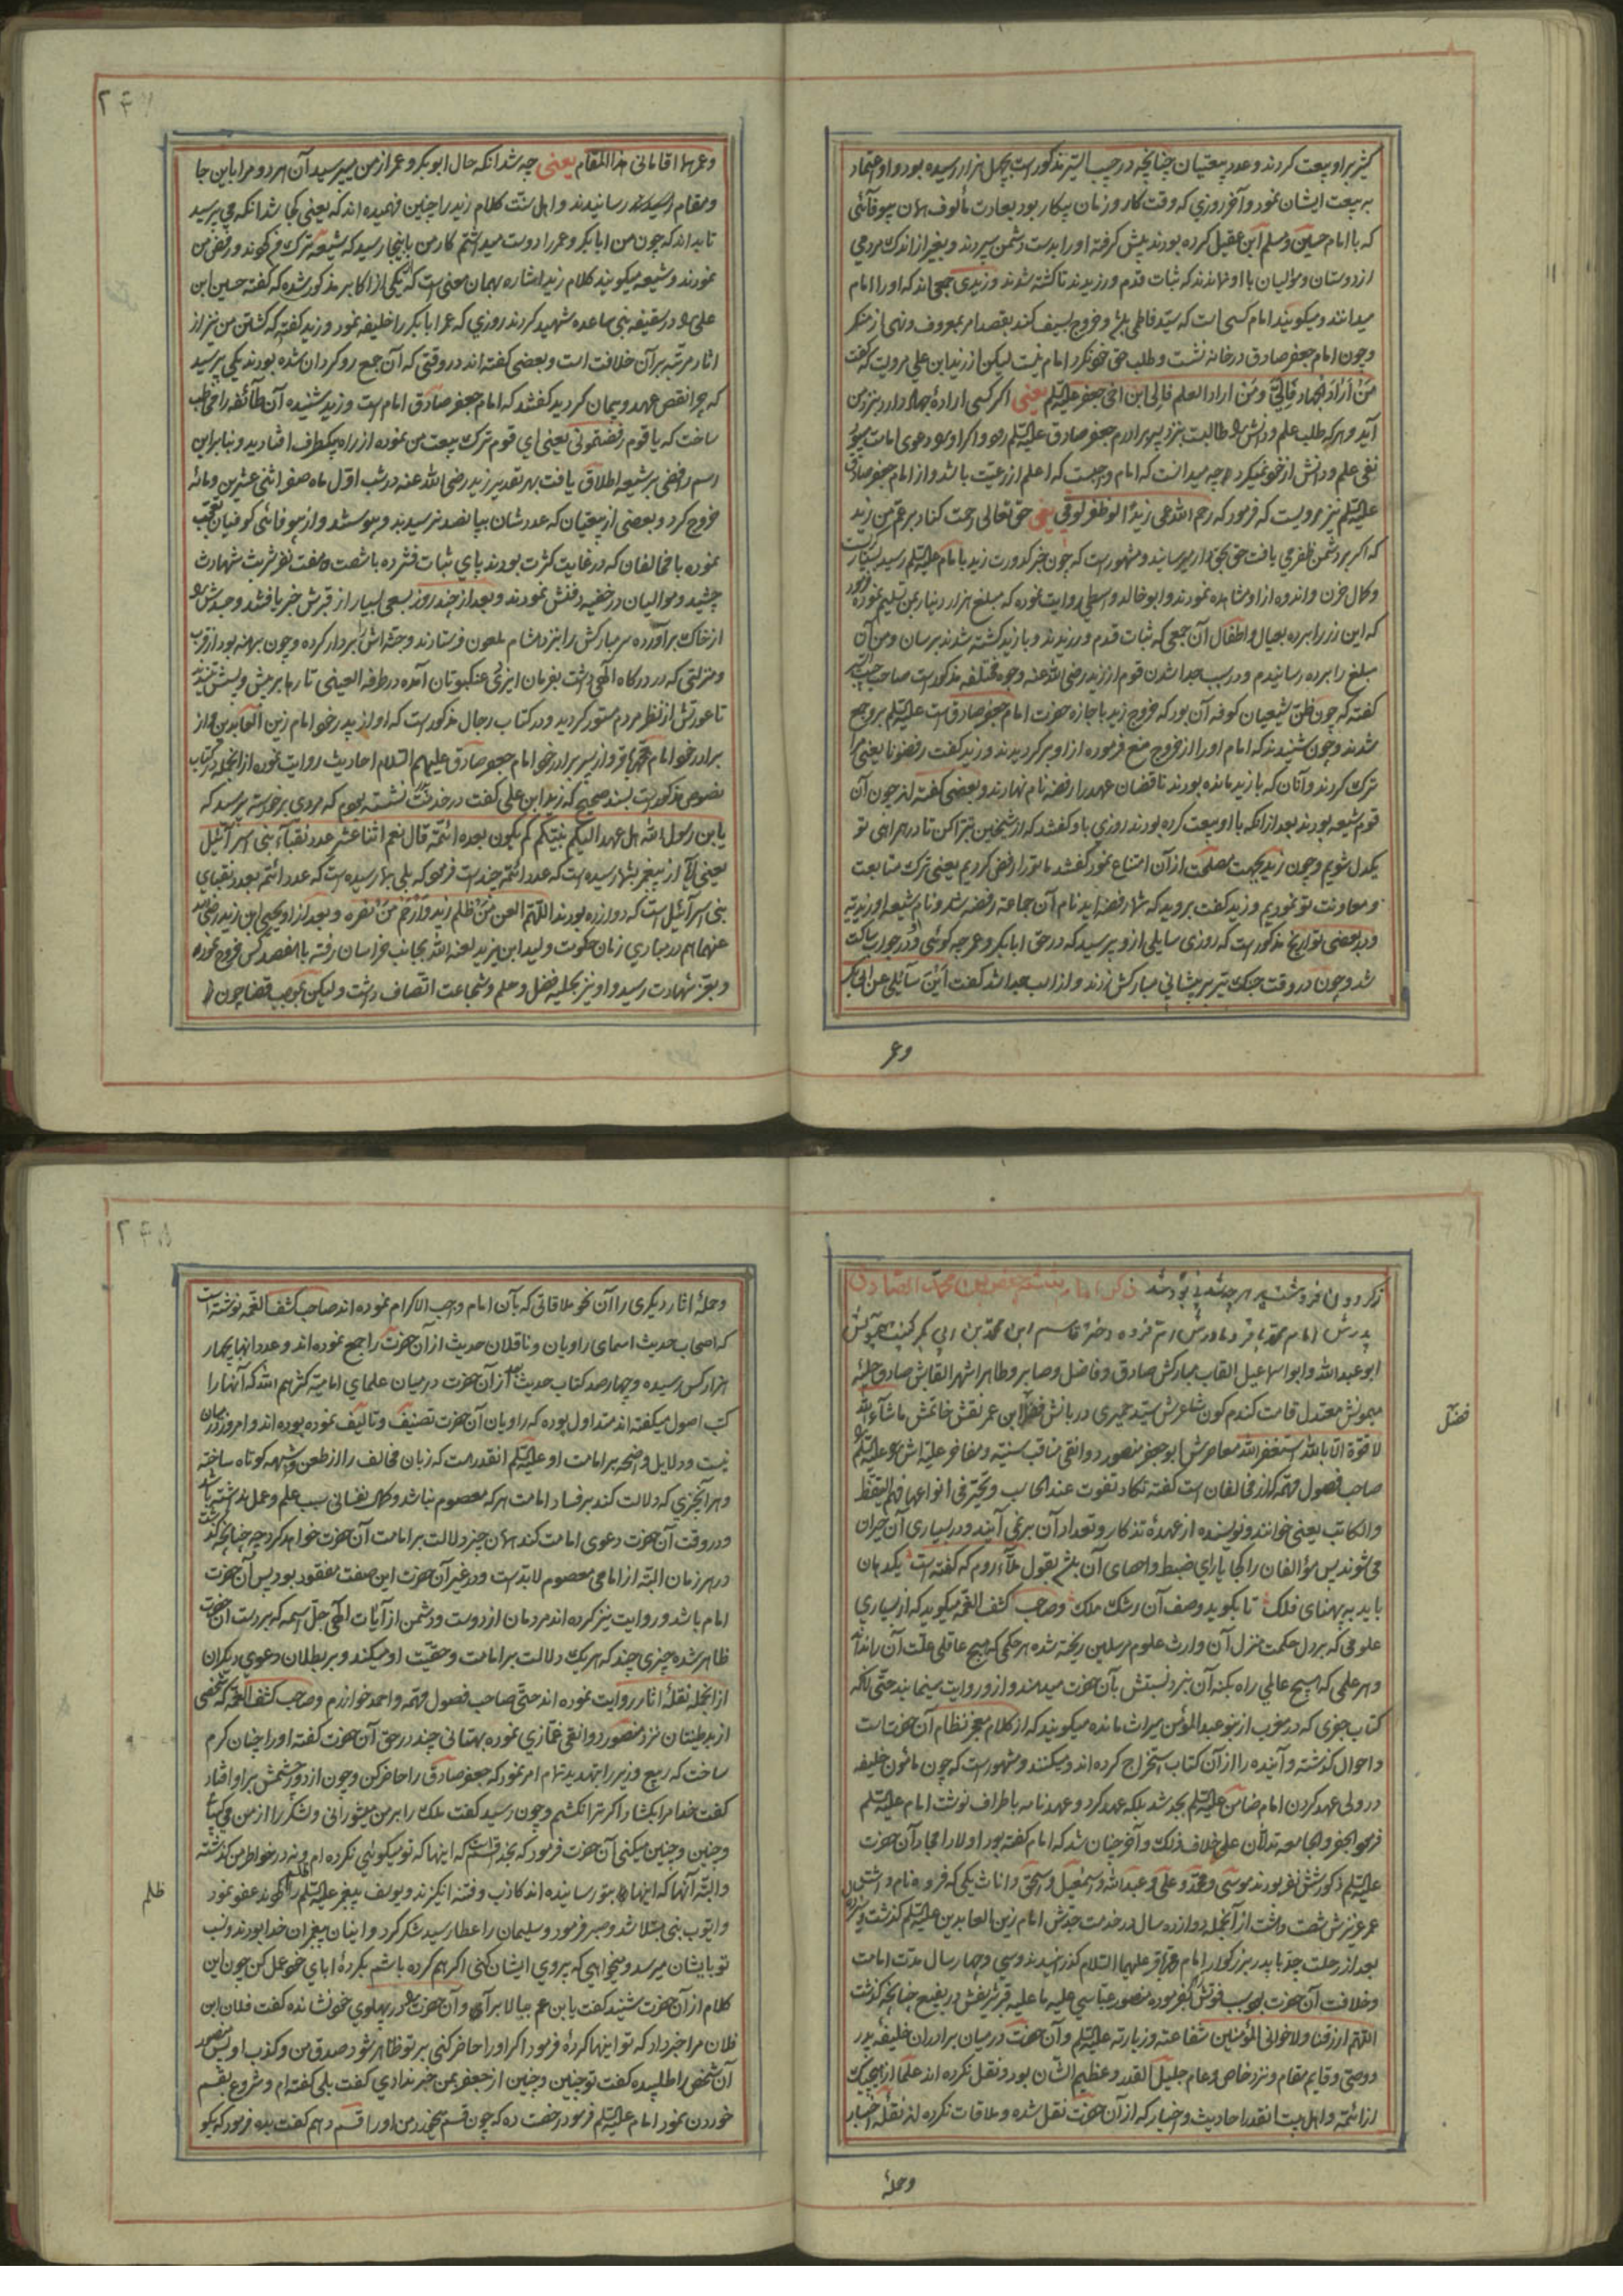 کثیر براو بیعت کردند و عدد بیعتیان چنانچه در حبیب السیر مذکور است بچهل هزار رسیده بود و او اعتماد
به بیعت ایشان نمود و آخر روزی که وقت کار و زمان پیکار بود بعادت مألوف همان بیوفائی
که با امام حسین و مسلم ابن عقیل کرده بودند پیش گرفته او را بدست دشمن سپردند و بغیر از اندک مردمی
از دوستان و موالیان با او نماندند که ثبات قدم ورزیدند تا کشته شدند و زیدی جمعی اند که او را امام
میدانند و میکویند امام کسی است که سید فاطمی باشد و خروج بسیف کند بقصد امر بمعروف و نهی از منکر
و چون امام جعفر صادق در خانه نشست و طلب حق خود نکرد امام نیست لیکن از زید ابن علی مرویست که گفت
مَنْ اَرَادَ الجهاد فَاِلَیَّ ومَنْ اراد العلم فَاِلی ابن اخی جعفر علیه السلم یعنی اکر کسی ارادهٔ جهاد دارد بنزد من
آید و هرکه طلب علم و دانش را طالبست بنزد پسر برادرم جعفر صادق علیه السلم رود و اکر او دعوی امامت میبود
نفی علم و دانش از خود نمیکرد چه میدانست که امام واجبست که اعلم از رعیّت باشد و از امام جعفر صادق
علیه السلم نیز مرویست که فرمود که رحم الله عمی زیدًا لو ظفر لوفی یعنی حق تعالی رحمت کناد بر عم من زید
که اکر بر دشمن ظفر می یافت حق بحقدار میرسانید و مشهور است که چون خبر کدورت زید بامام علیه السلم رسید بسیار
وکمال حزن و اندوه از او مشاهده نمودند و ابوخالد واسطی روایت نموده که مبلغ هزار دینار بمن تسلیم نموده
که این زر را برده بعیال و اطفال آن جمعی که ثبات قدم ورزیدند و با زید کشته شدند برسان و من آن
مبلغ را برده رسانیدم و در سبب جدا شدن قوم از زید رضی الله عنه وجوه مختلفه مذکور است صاحب حبیب السیر
کفته که چون ظنّ شیعیان کوفه آن بود که خروج زید با اجازه حضرت امام جعفر صادق است علیه السلم برو جمع
شدند و چون شنیدند که امام او را از خروج منع فرموده از او برکردیدند و زید کفت رفضونا یعنی مرا
ترک کردند و آنان که با زید مانده بودند ناقضان عهد را رفضه نام نهادند و بعضی کفته اند چون آن
قوم شیعه بودند بعد از آنکه با او بیعت کرده بودند روزی باو کفتند که از شیخین تبرّا کن تا در همراهی تو
یکدل شویم و چون زید بجهت مصلحت از آن امتناع نمود کفتند ما تو را رفض کردیم یعنی ترک متابعت
و معاونت تو نمودیم و زید کفت بروید که شما رفضه اید نام آن جماعة رفضه شد و نام شیعه او زیدیّه
و در بعضی تواریخ مذکور است که روزی سایلی از و پرسید که در حق ابابکر و عمر چه کوئی و در جواب ساکت
شد و چون در وقت جنک تیر بر پیشانی مبارکش زدند و از اسب جدا شد کفت اَیْنَ سآئلی عن ابی بکر
وعمر
وعمر هما اقامانی هذا المقام یعنی چه شد انکه حال ابوبکر و عمر از من میپرسید آن هر دو مرا باین جا
و مقام رسانیدند و اهل سنّت کلام زید را چنین فهمیده اند که یعنی کجا شد انکه می پرسید
تا بداند که چون من ابابکر و عمر را دوست میداشتم کار من باینجا رسید که شیعه ترک من کردند و رفض من
نمودند و شیعه میکویند کلام زید اشاره بهمان معنی است که یکی از اکابر مذکور شده که کفته حسین ابن
علی را در سقیفه بنی ساعده شهید کردند روزی که عمر ابابکر را خلیفه نمود و زید کفته که کشتن من نیز از
اثار مرتّبه بر آن خلافت است و بعضی کفته اند در وقتی که آن جمع رو کردان شده بودند یکی پرسید
که چرا نقض عهد و پیمان کردید کفتند که امام جعفر صادق امام است و زید شنیده آن طآئفه را مخاطب
ساخت که یا قوم رفضتمونی یعنی ای قوم ترک بیعت من نموده از راه یکطرف افتادید و بنابراین
اسم رافضی بر شیعه اطلاق یافت بهر تقدیر زید رضی الله عنه در شب اوّل ماه صفر اثنی عشرین و مائه
خروج کرد و بعضی از بیعتیان که عددشان بپانصد نرسید بدو پیوستند و از بیوفائی کوفیان تعجب
نموده با مخالفان که در غایت کثرت بودند پای ثبات فشرده با شصت و هفت نفر شربت شهادت
چشید و موالیان در خفیه دفنش نمودند و بعد از چند روز بسعی بسیار از قبرش خبر یافتند و جسدش را
از خاک برآورده سر مبارکش را بنزد هشام ملعون فرستادند و جثه اش را بر دار کرده و چون برهنه بود از قرب
ومنزلتی که در درکاه الهی داشت بفرمان ایزدی عنکبوتان آمده در طرفة العینی تارها بر پیش و پسش تنیدند
تا عورتش از نظر مردم مستور کردید و در کتاب رجال مذکور است که او از پدر خود امام زین العابدین و از
برادر خود امام محمد باقر و از پسر برادر خود امام جعفر صادق علیهم السلام احادیث روایت نموده از انجمله در کتاب
نصوص مذکور است بسند صحیح که زید ابن علی کفت در خدمت پدرم نشسته بودیم که مردی برخواسته پرسید که
یا بن رسول الله هل عهد الیکم نبیّکم کم یکون بعده ائمّة قال نعم اثنا عشر عدد نقبآء بنی اسرآئیل
یعنی آیا از پیغمبر بشما رسیده است که عدد ائمّه چند است فرمود که بلی بما رسیده است که عدد ائمّه بعدد نقبای
بنی اسرآئیل است که دوازده بودند اللّهم العن مَنْ ظلم زید وَارْحَمْ مَنْ نصره و بعد از او یحیی ابن زید رضی الله
عنهما هم در مبادی زمان حکومت ولید ابن یزید لعنه الله بجانب خراسان رفته با هفصد کس خروج نموده
و بعزّ شهادت رسید و او نیز بحلیه فضل و علم و شجاعت اتّصاف داشت ولیکن بحسب قضا چون
ذکر امام ششم جعفر بن محمد الصادق
پدرش امام محمد باقر و مادرش ام فروه دختر قاسم ابن محمد بن ابی بکر کنیت همیونش
ابو عبدالله و ابو اسماعیل القاب مبارکش صادق و فاضل و صابر و طاهر اشهر القابش صادق حلیهٔ
میمونش معتدل قامت کندم کون شاعرش سیّد حمیری دربانش مفضل ابن عمر نقش خاتمش ماشآء الله
لا قوّة الا بالله استغفر الله معاصرش ابوجعفر منصور دوانقی مناقب سنیّه و مفاخر علیّه اش را علیه السلم
فضل
صاحب فصول مهمّه که از مخالفان است کفته تکاد تفوت عند الحاسب و یحیّر فی انواعها فهم الیقظ
والکاتب یعنی خواننده و نویسنده از عهدهٔ تذکار و تعداد آن بر نمی آیند و در بسیاری آن حیران
می شوند پس مؤالفان را کجا یارای ضبط و احصای آن باشد بقول ملّای روم که کفته است یکدهان
باید به پهنای فلک تا بکوید وصف آن رشک ملک و صاحب کشف الغمّه میکوید که از بسیاری
علومی که بر دل حکمت منزل آن وارث علوم مرسلین ریخته شده هر حکمی که هیچ عاقلی علّت آن را نداند
و هر علمی که هیچ عالمی راه بکنه آن نبرد نسبتش بآن حضرت میدهند و از و روایت مینمایند حتّی انکه
کتاب جفری که در مغرب از بنو عبدالمؤمن میراث مانده میکویند که از کلام معجز نظام آن حضرت است
و احوال کذشته و آینده را از آن کتاب استخراج کرده اند و میکنند و مشهور است که چون مأمون خلیفه
در ولی عهد کردن امام ضامن علیه السلم بجد شد بلکه عهد کرد و عهدنامه باطراف نوشت امام علیه السلم
فرمود الجفر والجامعه تدلّان علی خلاف ذلک و آخر چنان شد که امام کفته بود اولاد امجاد آن حضرت
علیه السلم ذکور شش نفر بودند موسی و محمّد و علی و عبدالله و اسمعیل و اسحق و اناث یکی که فروه نام داشت
عمر عزیزش شصت و هشت از آنجمله دوازده سال در خدمت جدّش امام زین العابدین علیه السلم کذشت
بعد از رحلت جدّ با پدر بزرکوار امام محمد باقر علیهما السلام کذرانیدند و سی و چهار سال مدّت امامت
و خلافت آن حضرت بود سبب فوتش بفرموده منصور عبّاسی علیه ما علیه قبرش بقیع چنانچه کذشت
اللهم ارزقنا ولاخوانی المؤمنین شفاعته وزیارته علیه السلم و آن حضرت در میان برادران خلیفه پدر
و وصیّ و قایم مقام و نزد خاص و عام جلیل القدر و عظیم الشّان بود و نقل نکرده اند علما از هیچیک
از ائمّه و اهل بیت انقدر احادیث و اخبار که از آن حضرت نقل شده و ملاقات نکرده اند نقلهٔ اخبار
وحملهٔ
وحملهٔ اثار دیکری را آن نحو ملاقاتی که بآن امام واجب الاکرام نموده اند صاحب کشف الغمّه نوشته است
که اصحاب حدیث اسمای راویان و ناقلان حدیث از آن حضرت را جمع نموده اند و عدد انها بچهار
هزار کس رسیده و چهارصد کتاب حدیث از آن حضرت در میان علمای امامیّه کثّرهم الله که آنها را
کتب اصول میکفته اند متداول بوده که راویان آن حضرت تصنیف و تالیف نموده بوده اند و امروز در میان
نیست و دلایل واضحه بر امامت او علیه السلم انقدر هست که زبان مخالف را از طعن و شبهه کوتاه ساخته
و هر آنچیزی که دلالت کند بر فساد امامت هرکه معصوم نباشد و کمال نفسانی سبب علم و عمل نداشته باشد
و در وقت آن حضرت دعوی امامت کند همان چیز دلالت بر امامت آن حضرت خواهد کرد چه چنانچه کذشت
در هر زمان البتّه از امامی معصوم لابدّ است و در غیر آن حضرت این صفت مفقود بود پس آن حضرت
امام باشد و روایت نیز کرده اند مردمان از دوست و دشمن از آیات الهی جلّ اسمه که بر دست آن حضرت
ظاهر شده چیزی چند که هریک دلالت بر امامت و حقیّت او میکند و بر بطلان دعوی دیکران
از انجمله نقلهٔ اثار روایت نموده اند حتّی صاحب فصول مهمّه و احمد خوارزم و صاحب کشف الغمّه که شخصی
از بدطینتان نزد منصور دوانقی غمّازی نموده بهتانی چند در حق آن حضرت کفته او را چنان کرم
ساخت که ربیع وزیر را بتهدید تمام امر نمود که جعفر صادق را حاضر کن و چون از دور چشمش بر او افتاد
کفت خدا مرا بکشد اکر ترا نکشم و چون رسید کفت ملک را بر من میشورانی و لشکر را از من می
وچنین وچنین میکنی آن حضرت فرمود که بخدا قسم است که اینها که تو میکوئی نکرده ام و نه در خواطر من کذشته
و البتّه آنها که اینها را بتو رسانیده اند کاذب و فتنه انکیزند و یوسف پیغمبر علیه السلم را ظلم کردند عفو نمود
ظلم
و ایّوب نبی مبتلا شد و صبر فرمود و سلیمان را عطا رسید شکر کرد و اینان پیغمبران خدا بودند و نسب
تو بایشان میرسد و میخواهی که پیروی ایشان کنی اکر هم کرده باشم بکردهٔ ابای خود عمل کن چون این
کلام از آن حضرت شنید کفت یا بن عم بیا بالا برآی و آن حضرت را در پهلوی خود نشانده کفت فلان ابن
فلان مرا خبر داد که تو اینها کردهٔ فرمود اکر او را حاضر کنی بر تو ظاهر شود صدق من و کذب او پس منصور
آن شخص را طلبیده کفت تو چنین و چنین از جعفر بمن خبر ندادی کفت بلی کفته ام و شروع بقسم
خوردن نمود امام علیه السلم فرمود رخصت ده که چون قسم میخورد من او را قسم دهم کفت بده فرمود که بکو